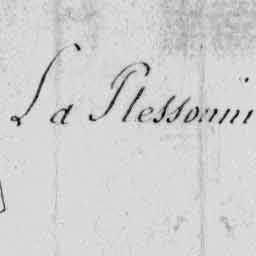 La Plessonni